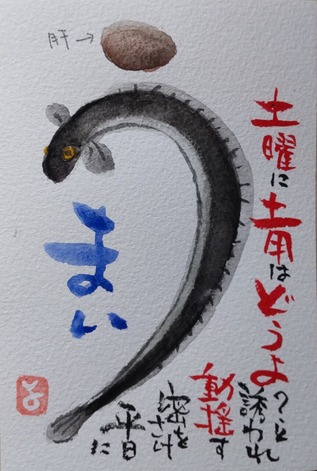 肝→
まい
土曜に土用はどうよ
?と誘われ
動揺す
密をさけ
平日に